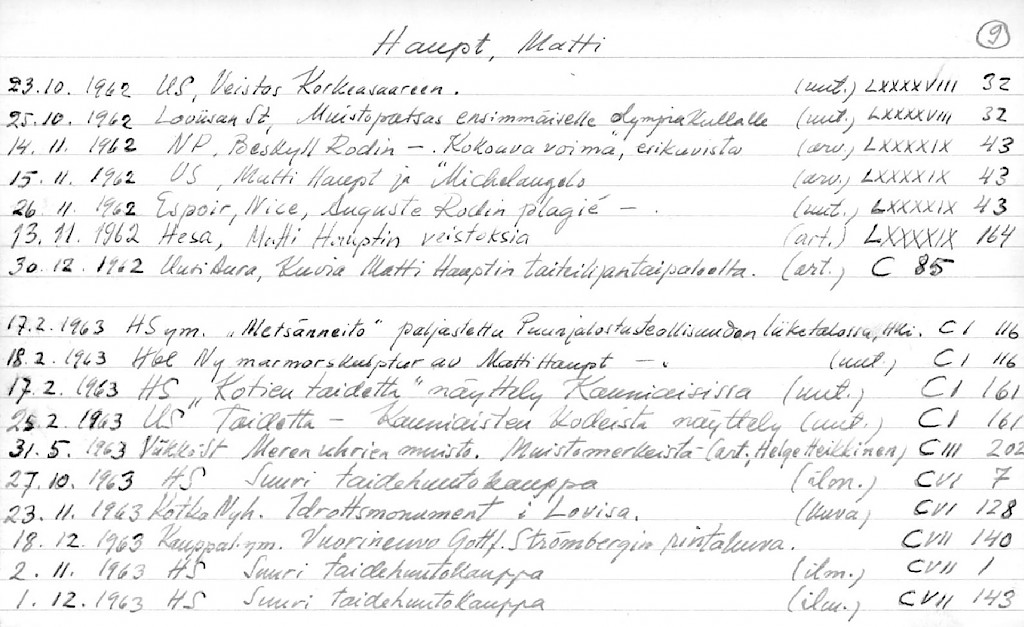 Haupt, Matti 9
23.10. 1962 US, Veistos Korkeasaareen. (uut.) LXXXXVIII 32
25.10. 1962 Loviisan St, Muistopatsas ensimmäiselle olympiakullalle (uut.) LXXXXVIII 32
14. 11. 1962 NP, Beskyll Rodin – "Kokoava voima", erikuvista (arv.) LXXXXIX 43
15. 11. 1962 US, Matti Haupt ja "Michelangelo (arv.) LXXXXIX 43
26. 11. 1962 Espoir, Nice, Auguste Rodin plagié – . (uut.) LXXXXIX 43
13. 11. 1962 Hesa, Matti Hauptin veistoksia (art.) LXXXXIX 164
30. 12. 1962 Uusi Aura, Kuvia Matti Hauptin taiteilijantaipaleelta. (art.) C 85
17.2. 1963 HS ym. "Metsänneito" paljastettu Puunjalostusteollisuuden liiketalossa, Hki. CI 116
18. 2. 1963 Hbl Ny marmorskulptur av Matti Haupt – . (uut.) CI 116
17. 2. 1963 HS "Kotien taidetta" näyttely Kauniaisissa (uut.) CI 161
25. 2. 1963 US Taidetta – Kauniaisten kodeista näyttely (uut.) CI 161
31. 5. 1963 ViikkoSt Meren uhrien muisto. Muistomerkeistä (art. Helge Heikkinen) CIII 202
27. 10. 1963 HS Suuri taidehuutokauppa (ilm.) CVI 7
23. 11. 1963 Kotka Nyh. Idrottsmonument i Lovisa. (kuva) CVI 128
18. 12. 1963 Kauppal. ym. Vuorineuvo Gottf. Strömbergin rintakuva. CVII 140
2. 11. 1963 HS Suuri taidehuutokauppa (ilm.) CVII 1
1. 12. 1963 HS Suuri taidehuutokauppa (ilm.) CVII 143